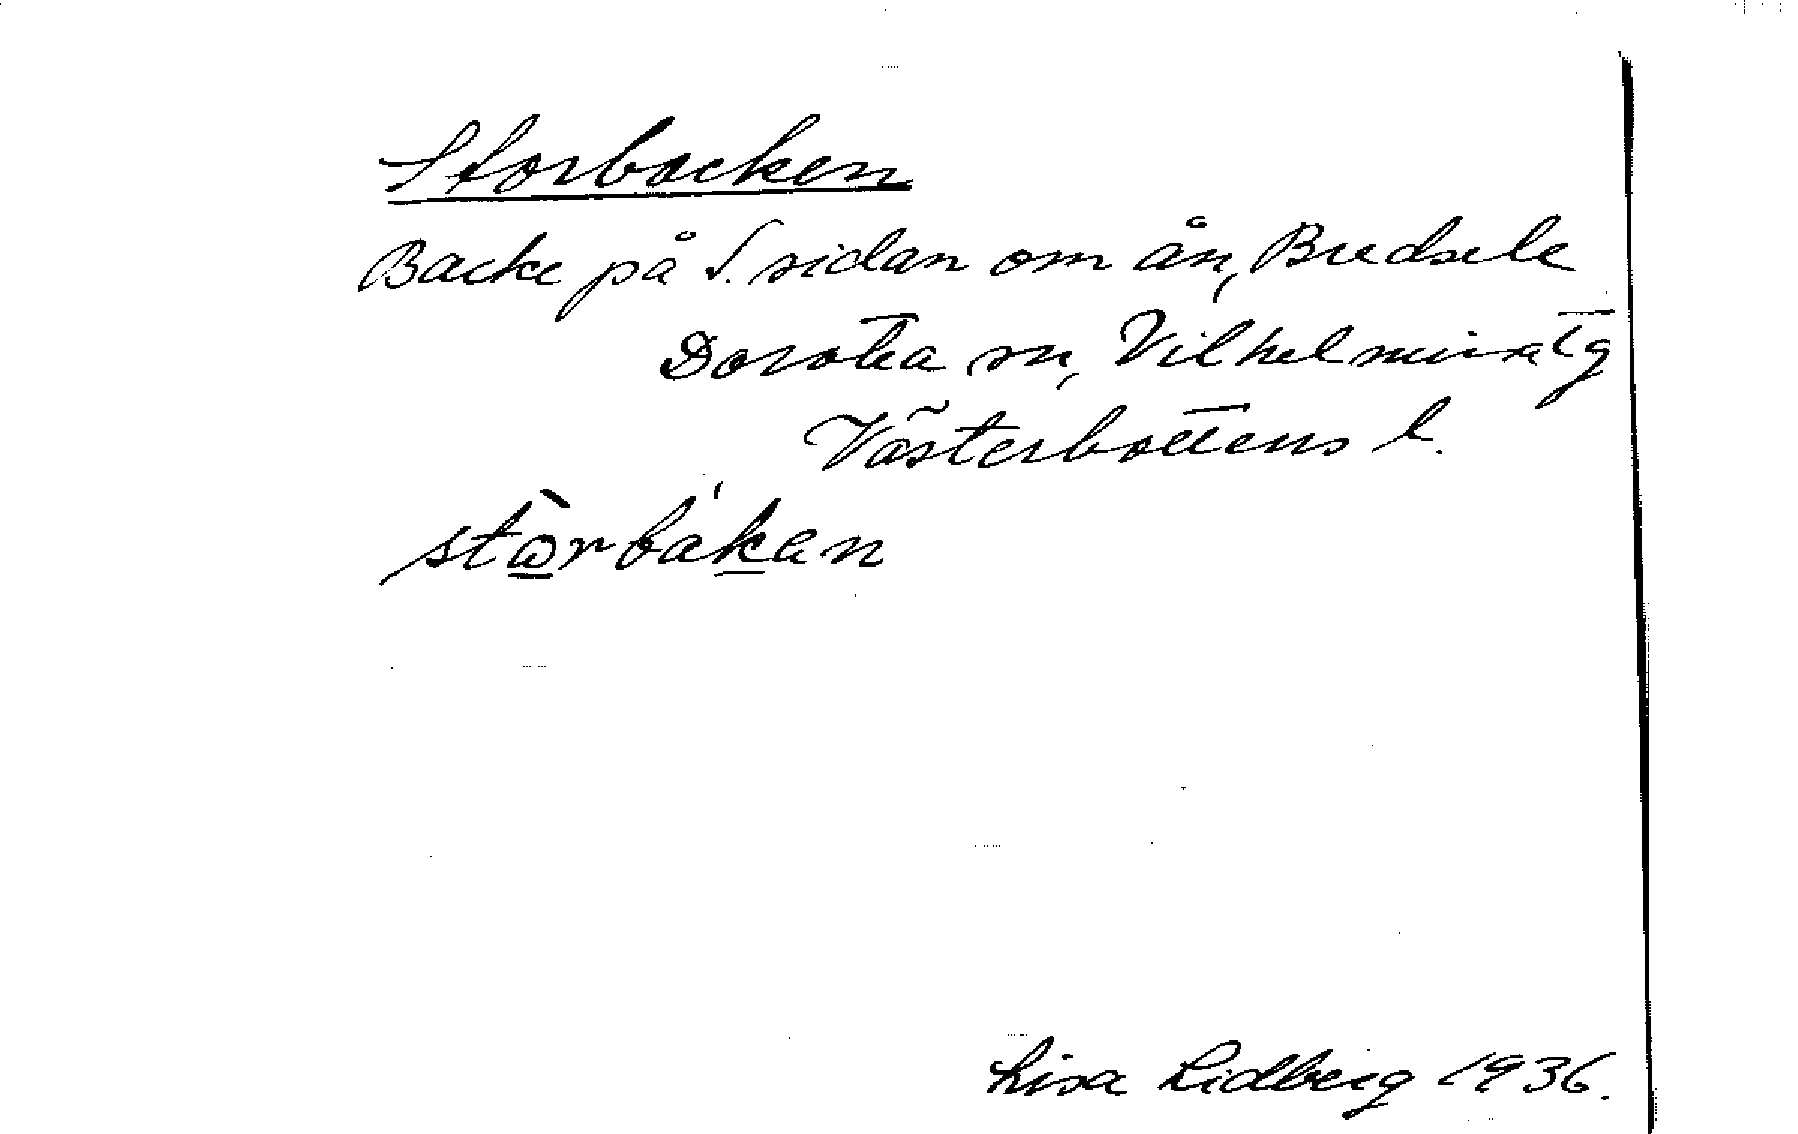 Storbacken
Backe på S. sidan om ån, Bredsele
Dorotea sn, Vilhelmina tg
Västerbottens l.
stòrbák̲an
Lisa Lidberg 1936.